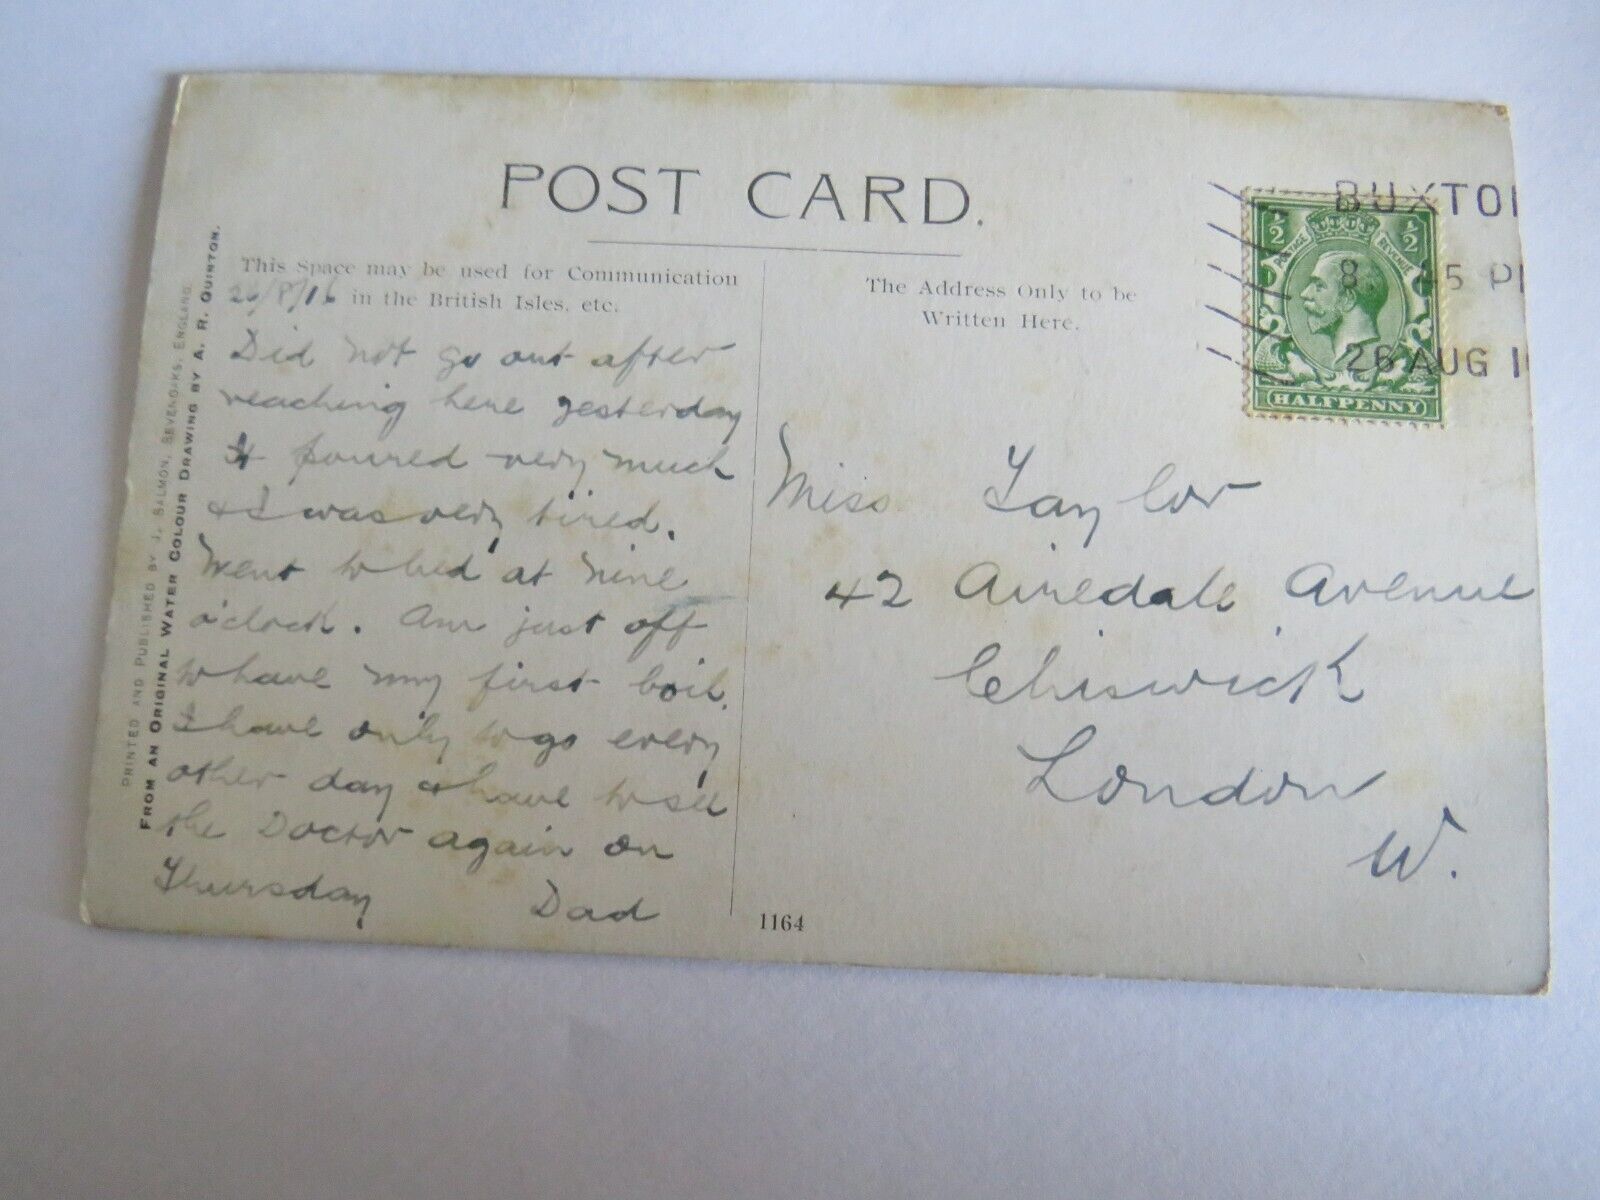 POST CARD.
This Space may be used for Communication
in the British Isles, etc.
26/8/16
Did not go out after
reaching here yesterday
It poured very much
& I was very tired.
Went to bed at nine
o'clock. Am just off
to have my first boil.
I have only to go every
other day & have to see
the Doctor again on
Thursday Dad
The Address Only to be
Written Here.
BUXTO
8 45 P
26 AUG 1
½ ½
POSTAGE REVENUE
HALFPENNY
Miss Taylor
42 Airedale Avenue
Chiswick
London
W.
1164
PRINTED AND PUBLISHED BY J. SALMON, SEVENOAKS, ENGLAND.
FROM AN ORIGINAL WATER COLOUR DRAWING BY A. R. QUINTON.